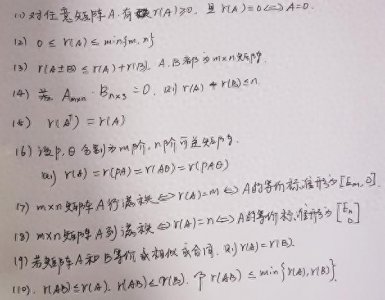 (1) 对任意矩阵 A. 有 r(A)≥0, 且 r(A)=0⟺A=0.
(2) 0≤r(A)≤min{m,n}
(3) r(A±B)≤r(A)+r(B). A, B都为 m×n矩阵.
(4) 若 Am×n·Bn×s=0, 则 r(A)+r(B)≤n.
(5) r(A^T)=r(A)
(6) 设P, Q 分别为m阶, n阶可逆矩阵.
则 r(A)=r(PA)=r(AQ)=r(PAQ)
(7) m×n矩阵A行满秩⟺r(A)=m⟺A的等价标准形为[Em,0].
(8) m×n矩阵A列满秩⟺r(A)=n⟺A的等价标准形为[En 0]
(9) 若矩阵A和B等价或相似或合同, 则 r(A)=r(B).
(10). r(AB)≤r(A), r(AB)≤r(B), 即 r(AB)≤min{r(A),r(B)}.